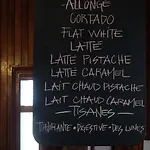 ALLONGÉ
CORTADO
FLAT WHITE
LATTE
LATTE PISTACHE
LATTE CARAMEL
LAIT CHAUD PISTACHE
LAIT CHAUD CARAMEL
TISANES
TONIFIANTE • DIGESTIVE • DES LUNES